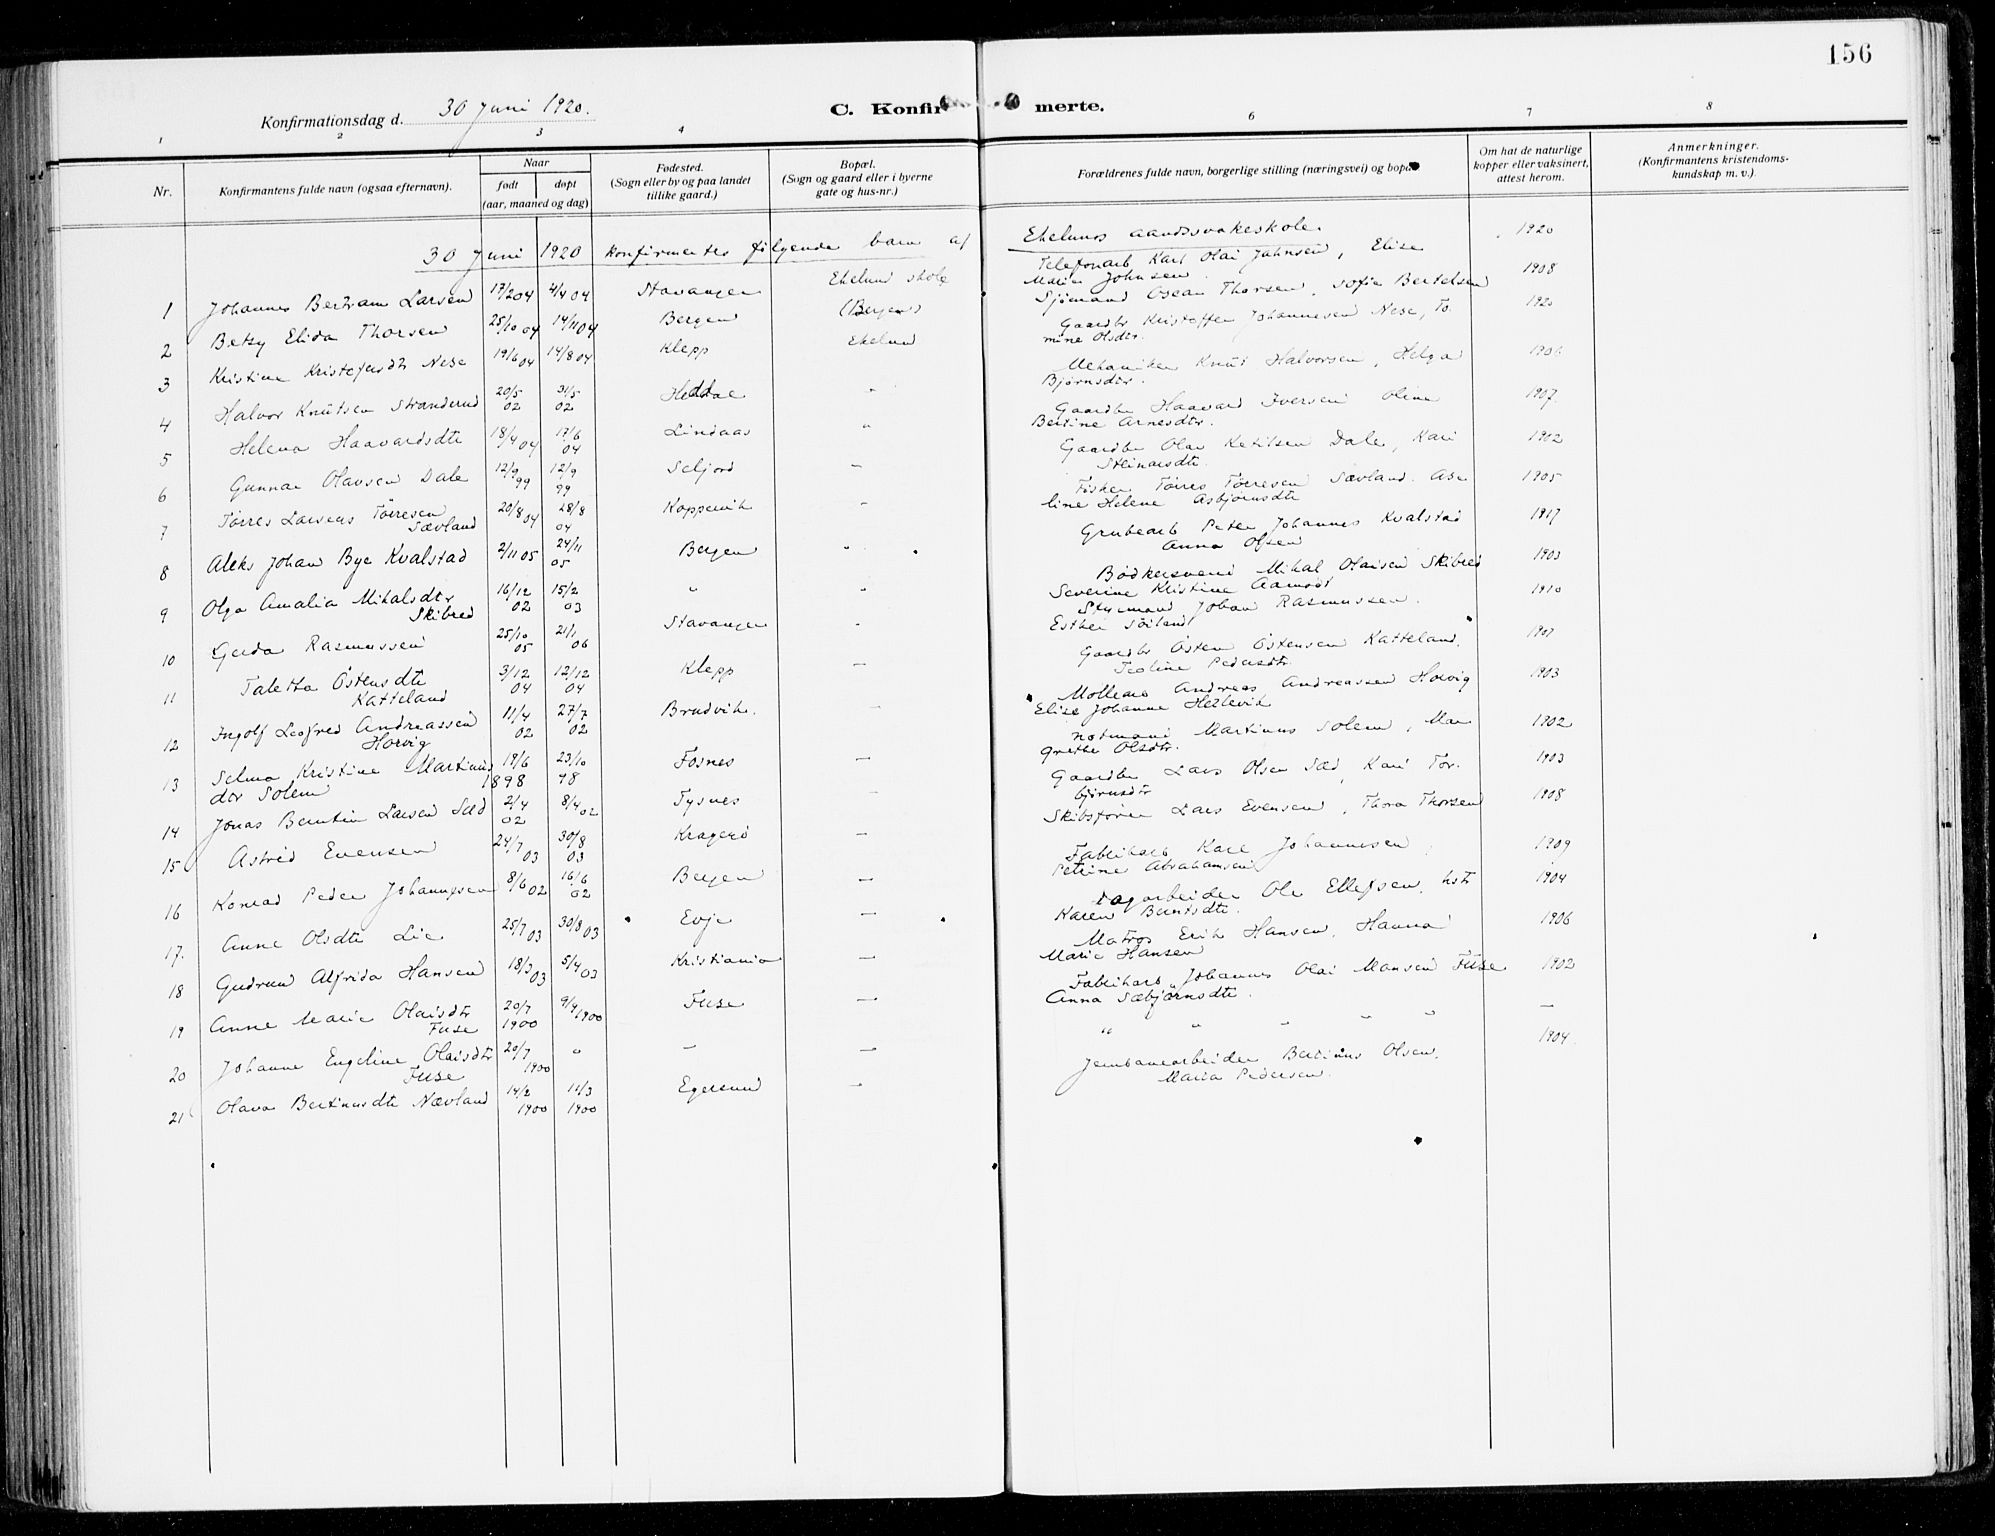 156
Konfirmationsdag d. 30 Juni 1920.
C. Konfir merte.
1 2 3 4 6 7 8
Nr.
Konfirmantens fulde navn (ogsaa efternavn).
Naar
født døpt
(aar, maaned og dag)
Fødested.
(Sogn eller by og paa landet
tillike gaard.)
Bopæl.
(Sogn og gaard eller i byerne
gate og hus-nr.)
Forældrenes fulde navn, borgerlige stilling (næringsvei) og bopæ
Om hat de naturlige
kopper eller vaksinert,
attest herom.
Anmerkninger.
(Konfirmantens kristendoms-
kundskap m. v.).
30 Juni 1920 konfirmertes følgende barn af Ekelunds aandssvakeskole.
1 Johannes Bertram Larsen 17/2 04 4/4 04 Stavanger Ekelund skole Telefonarb Karl Olai Johnsen, Elise 1920
(Bergen) Marie Johnsen.
2 Betsy Elida Thorsen 25/10 04 14/11 04 Bergen Ekelund Sjømand Oscar Thorsen, Sofie Bertelsen 1908
3 Kristine Kristofersdtr Nese 19/6 04 14/8 04 Klepp Gaardbr Kristoffer Johannesen Nese, To- 1920
mine Olsdtr.
4 Halvor Knutsen Stranderud 20/5 02 31/5 02 Heddal " Mekaniker Knut Halvorsen, Helga 1906
Bjørnsdtr.
5 Helena Haavardsdtr 18/4 04 17/6 04 Lindaas " Gaardbr Haavard Iversen Oline 1907
Bertine Arnesdtr.
6 Gunnar Olavsen Dale 12/9 99 12/9 99 Seljord — Gaardbr Olav Ketilsen Dale, Kari 1902
Steinarsdtr.
7 Tørres Larseus Tørresen 20/8 04 28/8 04 Koppervik — Fisker Tørres Tørresen Sævland. Ase 1905
Sævland line Helene Asbjørnsdtr
8 Aleks Johan Bye Kvalstad 2/11 05 24/11 05 Bergen " Grubearb Peter Johannes Kvalstad 1917
Anna Olsen
9 Olga Amalia Mihalsdtr 16/12 02 15/2 03 " " Bødkersvend Mihal Olaisen Skibred 1903
Skibred Severine Kristine Aamodt
10 Gerda Rasmussen 25/10 05 21/1 06 Stavanger " Styrmand Johan Rasmussen. 1910
Esther Söiland
11 Taletta Östensdtr 3/12 04 12/12 04 Klepp — Gaardbr Östen Östensen Katteland. 1907
Katteland Teoline Pedersdtr.
12 Ingolf Leofred Andreassen 11/4 02 27/7 02 Bruvik. — Møllearb Andreas Andreassen Horvig 1903
Horvig Elise Johanne Hetlevik
13 Selma Kristine Martinus 19/6 1898 23/10 98 Fosnes — Notmand Martinus Solem, Mar 1902
dtr Solem grethe Olsdtr.
14 Jonas Berntin Larsen Sæd 2/4 02 8/4 02 Tysnes — Gaardbr Lars Olsen Sæd, Kari Tor- 1903
bjørnsdtr
15 Astrid Evensen 24/7 03 30/8 03 Kragerö — Skibsfører Lars Evensen, Thora Thorsen 1908
16 Konrad Peder Johannesen 8/6 02 16/6 02 Bergen — Fabrikarb Karl Johannesen 1909
Petrine Abrahamsen
17. Anne Olsdtr Lie 25/7 03 30/8 03 Evje — Dagarbeider Ole Ellefsen, hstr 1904
Karen Berntsdtr.
18 Gudrun Alfrida Hansen 18/3 03 5/4 03 Kristiania — Matros Erik Hansen, Hanna 1906
Marie Hansen
19 Anne Marie Olaisdtr 20/7 1900 9/9 1900 Fuse — Fabrikarb Johannes Olai Mansen Fuse 1902
Fuse Anna Sæbjørnsdtr.
20 Johanne Engeline Olaisdtr 20/7 1900 " — — " " " " " —
Fuse
21 Olava Bertinusdtr Nævland 14/2 1900 11/3 1900 Egersund — Jernbanearbeider Bertinus Olsen. 1904
Maria Pedersen.